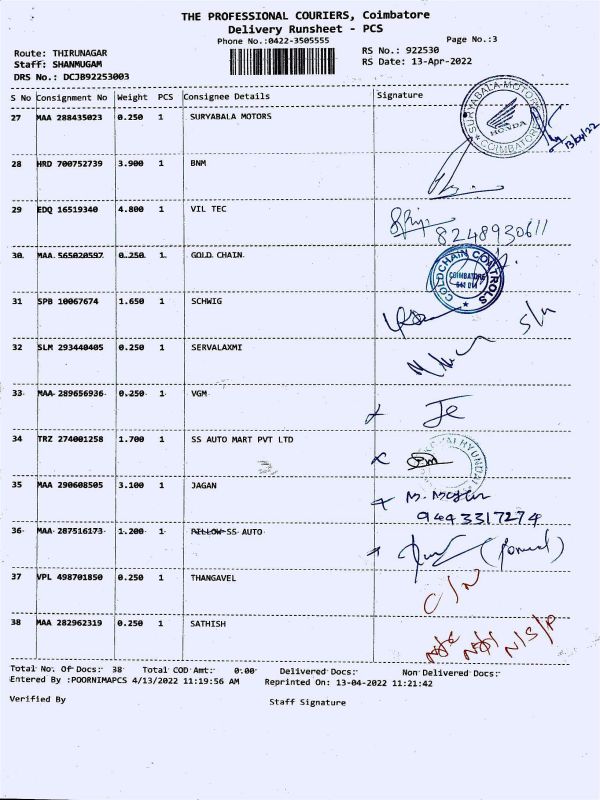 THE PROFESSIONAL COURIERS, Coimbatore
Delivery Runsheet - PCS
Phone No.:0422-3505555
Page No.:3
Route: THIRUNAGAR
RS No.: 922530
Staff: SHANMUGAM
RS Date: 13-Apr-2022
DRS No.: DCJB92253003
S No Consignment No Weight PCS Consignee Details Signature
27 MAA 288435023 0.250 1 SURYABALA MOTORS
SURYABALA MOTORS
HONDA
COIMBATORE
13/04/22
28 HRD 700752739 3.900 1 BNM
29 EDQ 16519340 4.800 1 VIL TEC
8248930611
30 MAA 565020597 0.250 1 GOLD CHAIN
COLDCHAIN CONTROLS
COIMBATORE
31 SPB 10067674 1.650 1 SCHWIG
32 SLM 293440405 0.250 1 SERVALAXMI
33 MAA 289656936 0.250 1 VGM
34 TRZ 274001258 1.700 1 SS AUTO MART PVT LTD
35 MAA 290608505 3.100 1 JAGAN
9443317274
36 MAA 287516173 1.200 1 PILLOW SS AUTO
37 VPL 498701850 0.250 1 THANGAVEL
C/N
38 MAA 282962319 0.250 1 SATHISH
N/S/P
Total No. Of Docs: 38 Total COD Amt: 0.00 Delivered Docs: Non Delivered Docs:
Entered By :POORNIMAPCS 4/13/2022 11:19:56 AM Reprinted On: 13-04-2022 11:21:42
Verified By
Staff Signature